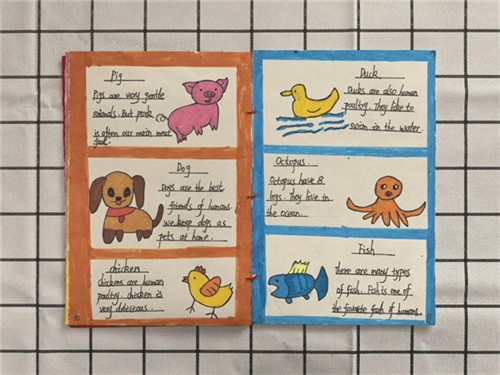 Pig
Pigs are very gentle
animals. But pork
is often our main meat
food.
Dog
Dogs are the best
friends of humans.
we keep dogs as
pets at home.
chicken
chickens are human
poultry. chicken is
very delicious.
10
Duck
Ducks are also human
poultry. They like to
swim in the water.
Octopus.
Octopus have 8
legs. They live in
the ocean.
Fish
There are many types
of fish. Fish is one of
the favorite foods of humans.
11